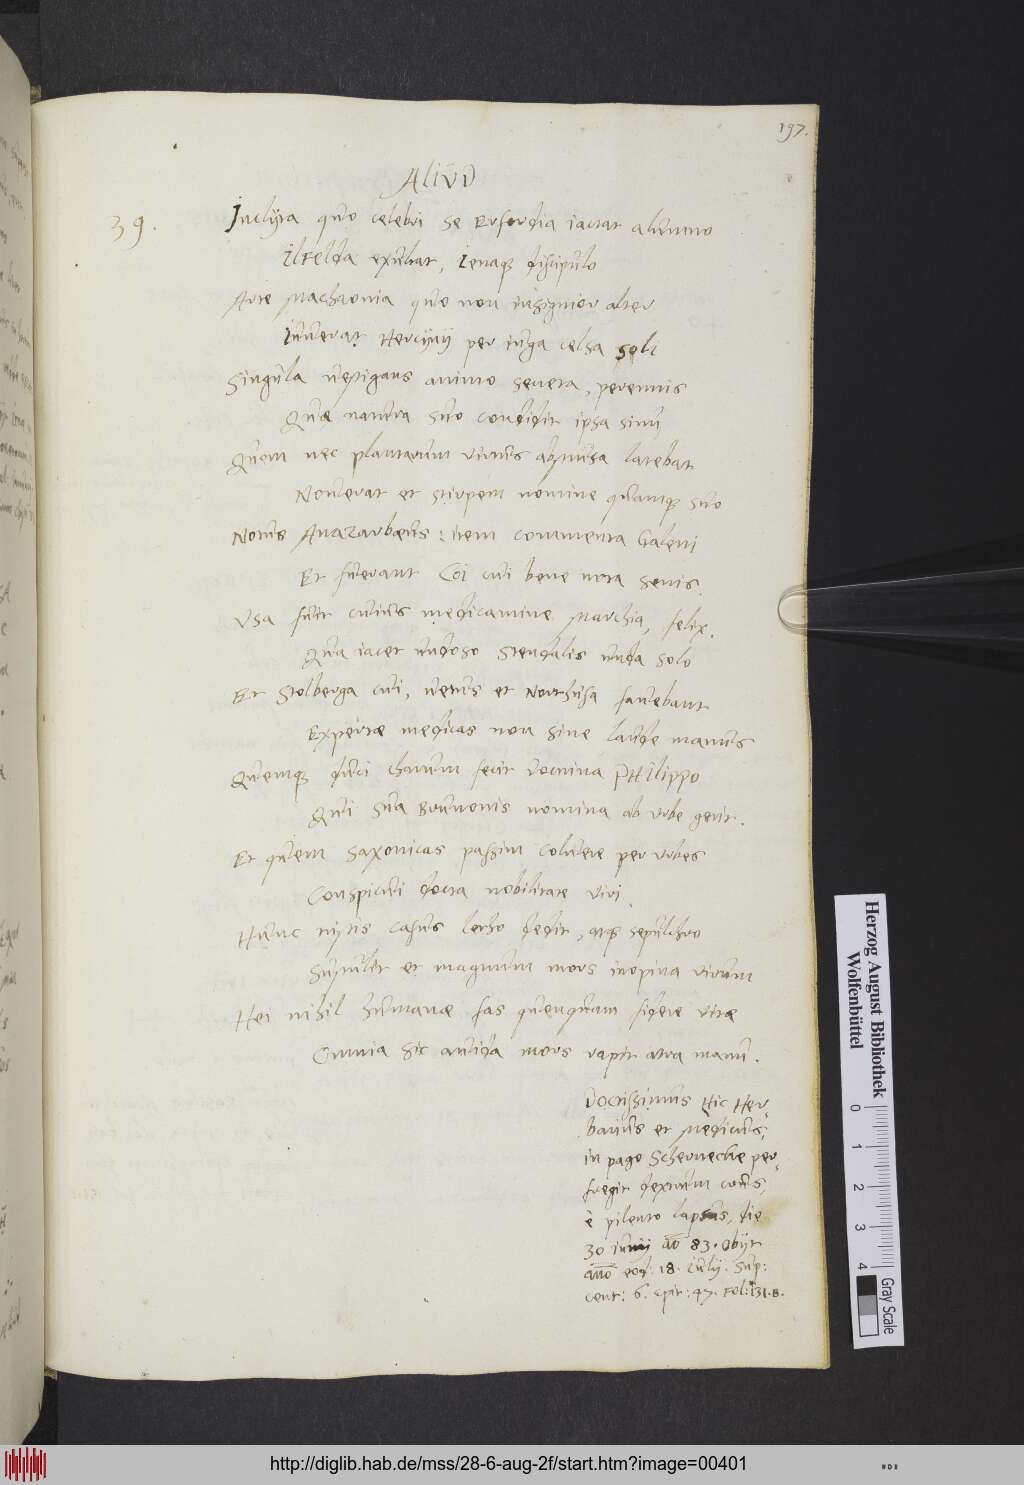 197.
Aliud
39.
Inclyta quo celebri se Erfordia iactat alumno
Ilfelda exultat, Ienaq. discipulo
Arte Machaonia quo non insignior alter
Iuverat Hercynij per iuga celsa soli
Singula vestigans animo severa, perennis
Quae natura suo condidit ipsa sinu
Quem nec plantarum virtus latebat
Noverat et stirpem nomine quamq. suo
Notus Anazarbaeus: item commenta Galeni
Et fuerant Coi cui bene nota senis.
Usa fuit cuius medicamine Marchia, felix.
Qua iacet undoso Stendalis unda solo
Et Stolberga cui, vetus et Northusa favebant
Expertae medicas non sine laude manus
Quemq. duci charum fecit doctrina PHilippo
Qui sua Brunonis nomina ab urbe gerit.
Et quem Saxonicas passim coluere per urbes
Conspicui docta nobilitate viri.
Hunc tristis casus letho dedit, atq. sepulchro
Sustulit et magnum mors inopina virum
Hei nihil humanae fas quenquam fidere vitae
Omnia sic avida mors rapit atra manu.
Doctissimus Hic Her-
barius et Medicus,
in pago Schernecke per-
fregit dextrum crus,
è pilento lapsus, die
30 iunij ao 83. Obijt
anno eod: 18. iulij. Sup:
cent: 6. epit: 47. Fol: 131.8.
Herzog August Bibliothek
Wolfenbüttel
0 1 2 3 4
Gray Scale
http://diglib.hab.de/mss/28-6-aug-2f/start.htm?image=00401